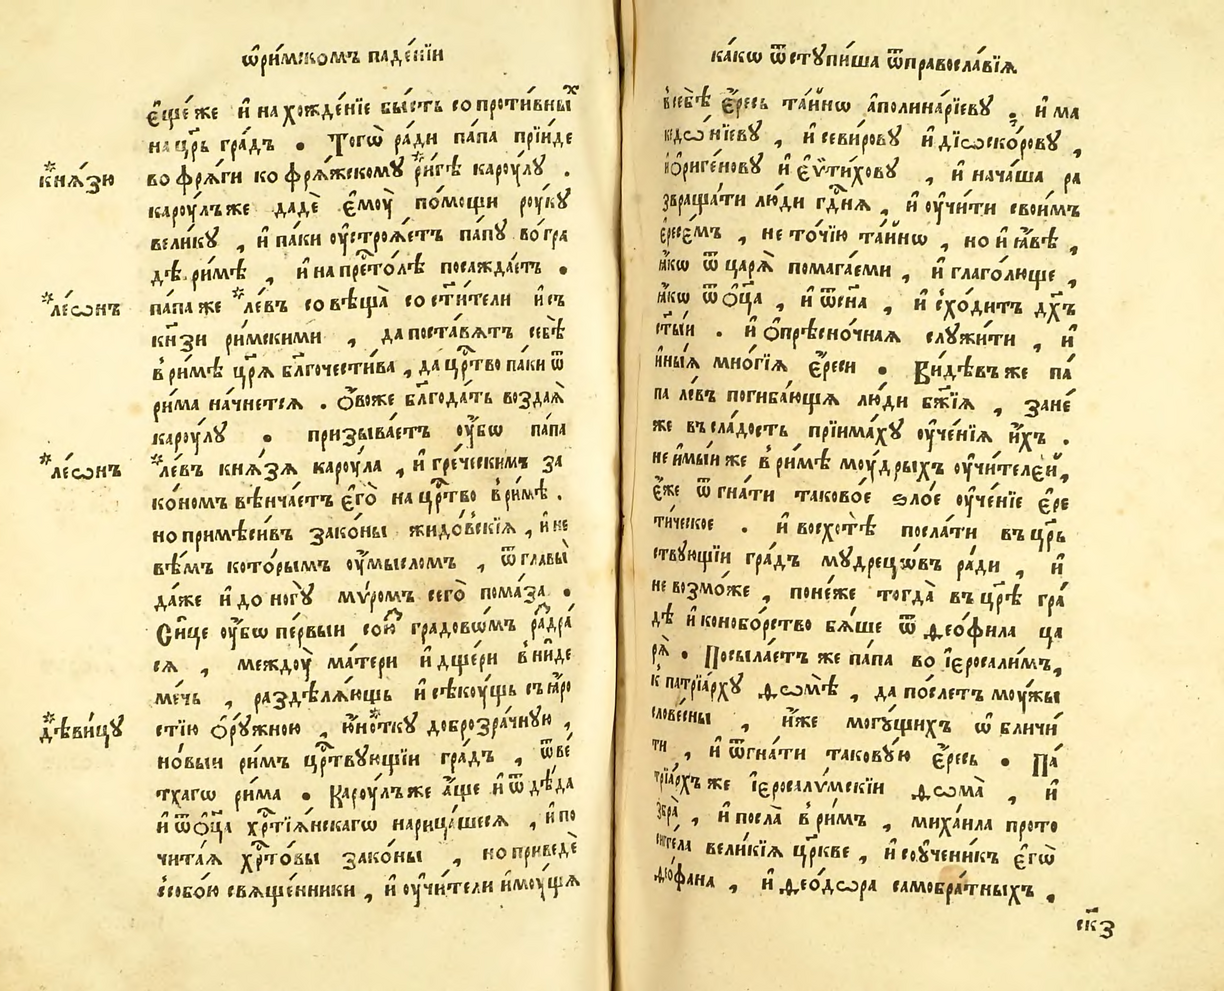 ѡ҆ри́мскомъ паде́нїи
є҆ще́ же и҆ нахожде́нїе бы́сть сопроти́вныⷯ
на цр҃ь гра́дъ . Тогѡ̀ ра́ди па́па прїи́де
*кнѧ́зю
во фрѧ́ги ко фрѧ́жскому *ри́гѣ кароу́лꙋ .
кароу́лъ же дадѐ є҆моу̀ по́мощи роу́кꙋ
вели́кꙋ , и҆ па́ки оу҆строѧ́етъ па́пꙋ во гра
дѣ ри́мѣ , и҆ на прⷭ҇то́лѣ посажда́етъ .
*ле́ѡнъ
па́па же *ле́въ совѣща̀ со ст҃и́тели и҆ съ
кн҃зи ри́мскими , да поста́вѧтъ себѣ̀
в ри́мѣ цр҃ѧ̀ бл҃гочести́ва , да црⷭ҇тво па́ки ѿ
ри́ма начне́тсѧ . Ѻ҆во́же бл҃года́ть воздаѧ̀
кароу́лꙋ . призыва́етъ оу҆́бѡ па́па
*ле́ѡнъ
*ле́въ кнѧ́зѧ кароу́ла , и҆ гре́ческимъ за
ко́номъ вѣнча́етъ є҆го̀ на црⷭ҇тво в ри́мѣ .
но примѣси́въ зако́ны жидо́вскїѧ , и҆ не
вѣ́мъ кото́рымъ оу҆́мысломъ , ѿ главы̀
да́же и҆ до ногꙋ̀ мѵ́ромъ сего̀ пома́за .
Си́це оу҆́бѡ пе́рвыи сою́ꙁ градовѡ́мъ раⷥдра́
сѧ , междоу̀ ма́тери и҆ дще́ри вни́де
ме́чь , раздѣлѧ́ющь и҆ сѣкоу́щь съ ꙗ҆ро
*дѣви́цꙋ
стїю ѻ҆рꙋ́жною , ю҆́н*ѻткꙋ доброзра́чнꙋю ,
но́выи ри́мъ црⷭ҇твꙋ́ющїи гра́дъ , ѿ ве́
тхагѡ ри́ма . Кароу́лъ же а҆́ще и҆ ѿ дѣ́да
и҆ ѿ ѻ҆ц҃а̀ хрⷭ҇тїѧ́нскагѡ нарица́шесѧ , и҆ по
чита́ѧ хрⷭ҇то́вы зако́ны , но приведѐ
с собо́ю свѧще́нники , и҆ оу҆чи́тели и҆моу́щѧ
ка́кѡ ѿстꙋпи́ша ѿправосла́вїѧ
в себѣ̀ є҆́ресь та́йнѡ а҆полина́рїевꙋ , и҆ ма
кедѡ́нїевꙋ , и҆ севи́ровꙋ и҆ дїѡско́ровꙋ ,
и҆ ѻ҆риге́новꙋ и҆ є҆ѵти́ховꙋ , и҆ нача́ша ра
звраща́ти лю́ди гдⷭ҇нѧ , и҆ оу҆чи́ти свои́мъ
є҆ресе́мъ , не то́чїю та́йнѡ , но и҆ ꙗ҆́вѣ ,
ꙗ҆́кѡ ѿ царѧ̀ помага́еми , и҆ глаго́люще ,
ꙗ҆́кѡ ѿ ѻ҆ц҃а , и҆ ѿ сн҃а , и҆ схо́дитъ дх҃ъ
ст҃ы́и . и҆ ѻ҆прѣсно́чнаѧ слꙋжи́ти , и҆
и҆ны́ѧ мно́гїѧ є҆́реси . Ви́дѣвъ же па́
па ле́въ погиба́ющѧ лю́ди бж҃їѧ , зане́
же въ сла́дость прїима́хꙋ оу҆че́нїѧ и҆́хъ .
не и҆мы́и же в ри́мѣ моу́дрыхъ оу҆чи́телей,
є҆́же ѿгна́ти таково́е ѕло́е оу҆че́нїе є҆ре
ти́ческое . и҆ восхотѣ̀ посла́ти въ цр҃ь
ствꙋ́ющїи гра́дъ мꙋдрецѡ́въ ра́ди , и҆
не возмо́же , поне́же тогда̀ въ цр҃ѣ гра́
дѣ и҆коноборство бѧ́ше ѿ ѳео́фила ца
рѧ̀ . Посыла́етъ же па́па во і҆еросали́мъ,
к патрїа́рхꙋ ѳѡмѣ̀ , да по́слетъ моу́жы
слове́сны , и҆́же могꙋ́щихъ ѡ҆бличи́
ти , и҆ ѿгна́ти такову́ю є҆́ресь . Па
трїа́рхъ же і҆еросалѵ́мскїи ѳѡма̀ , и҆
збра̀ , и҆ посла̀ в ри́мъ , миха́ила прото
сиггела вели́кїѧ цр҃кве , и҆ соу҆ченикъ є҆гѡ̀
ѳео́фана , и҆ ѳео́дѡра самобра́тныхъ .
ск҃з